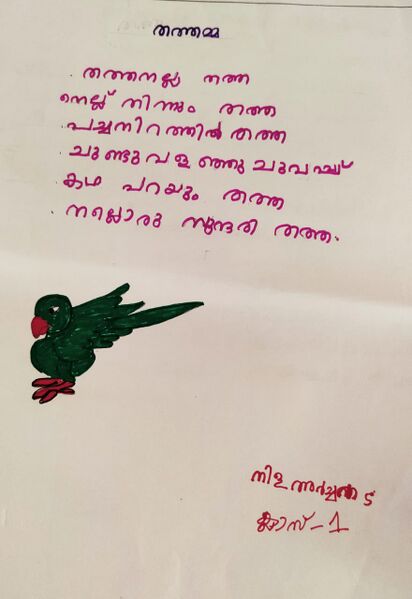 തത്തമ്മ
തത്തനല്ല തത്ത
നെല്ല് നിന്നും തത്ത
പച്ചനിറത്തിൽ തത്ത
ചുണ്ടുവളഞ്ഞു ചുവപ്പ്
കഥ പറയും തത്ത
നല്ലൊരു സുന്ദരി തത്ത.
നിള
ക്ലാസ് - 1